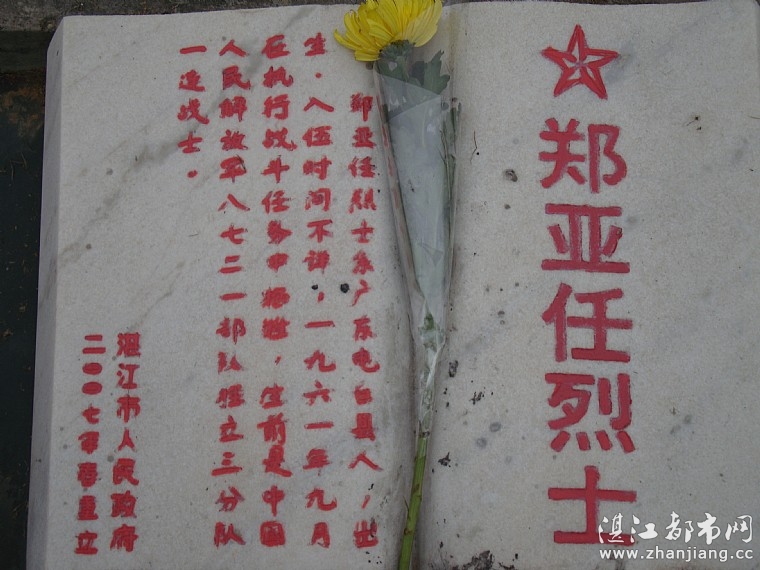 郑亚任烈士
郑亚任烈士系广东电白县人，出
生、入伍时间不详，一九六一年九月
在执行战斗任务中牺牲，生前是中国
人民解放军八七二一部队独立三分队
一连战士。
湛江市人民政府
二〇〇七年春重立
湛江都市网
www.zhanjiang.cc